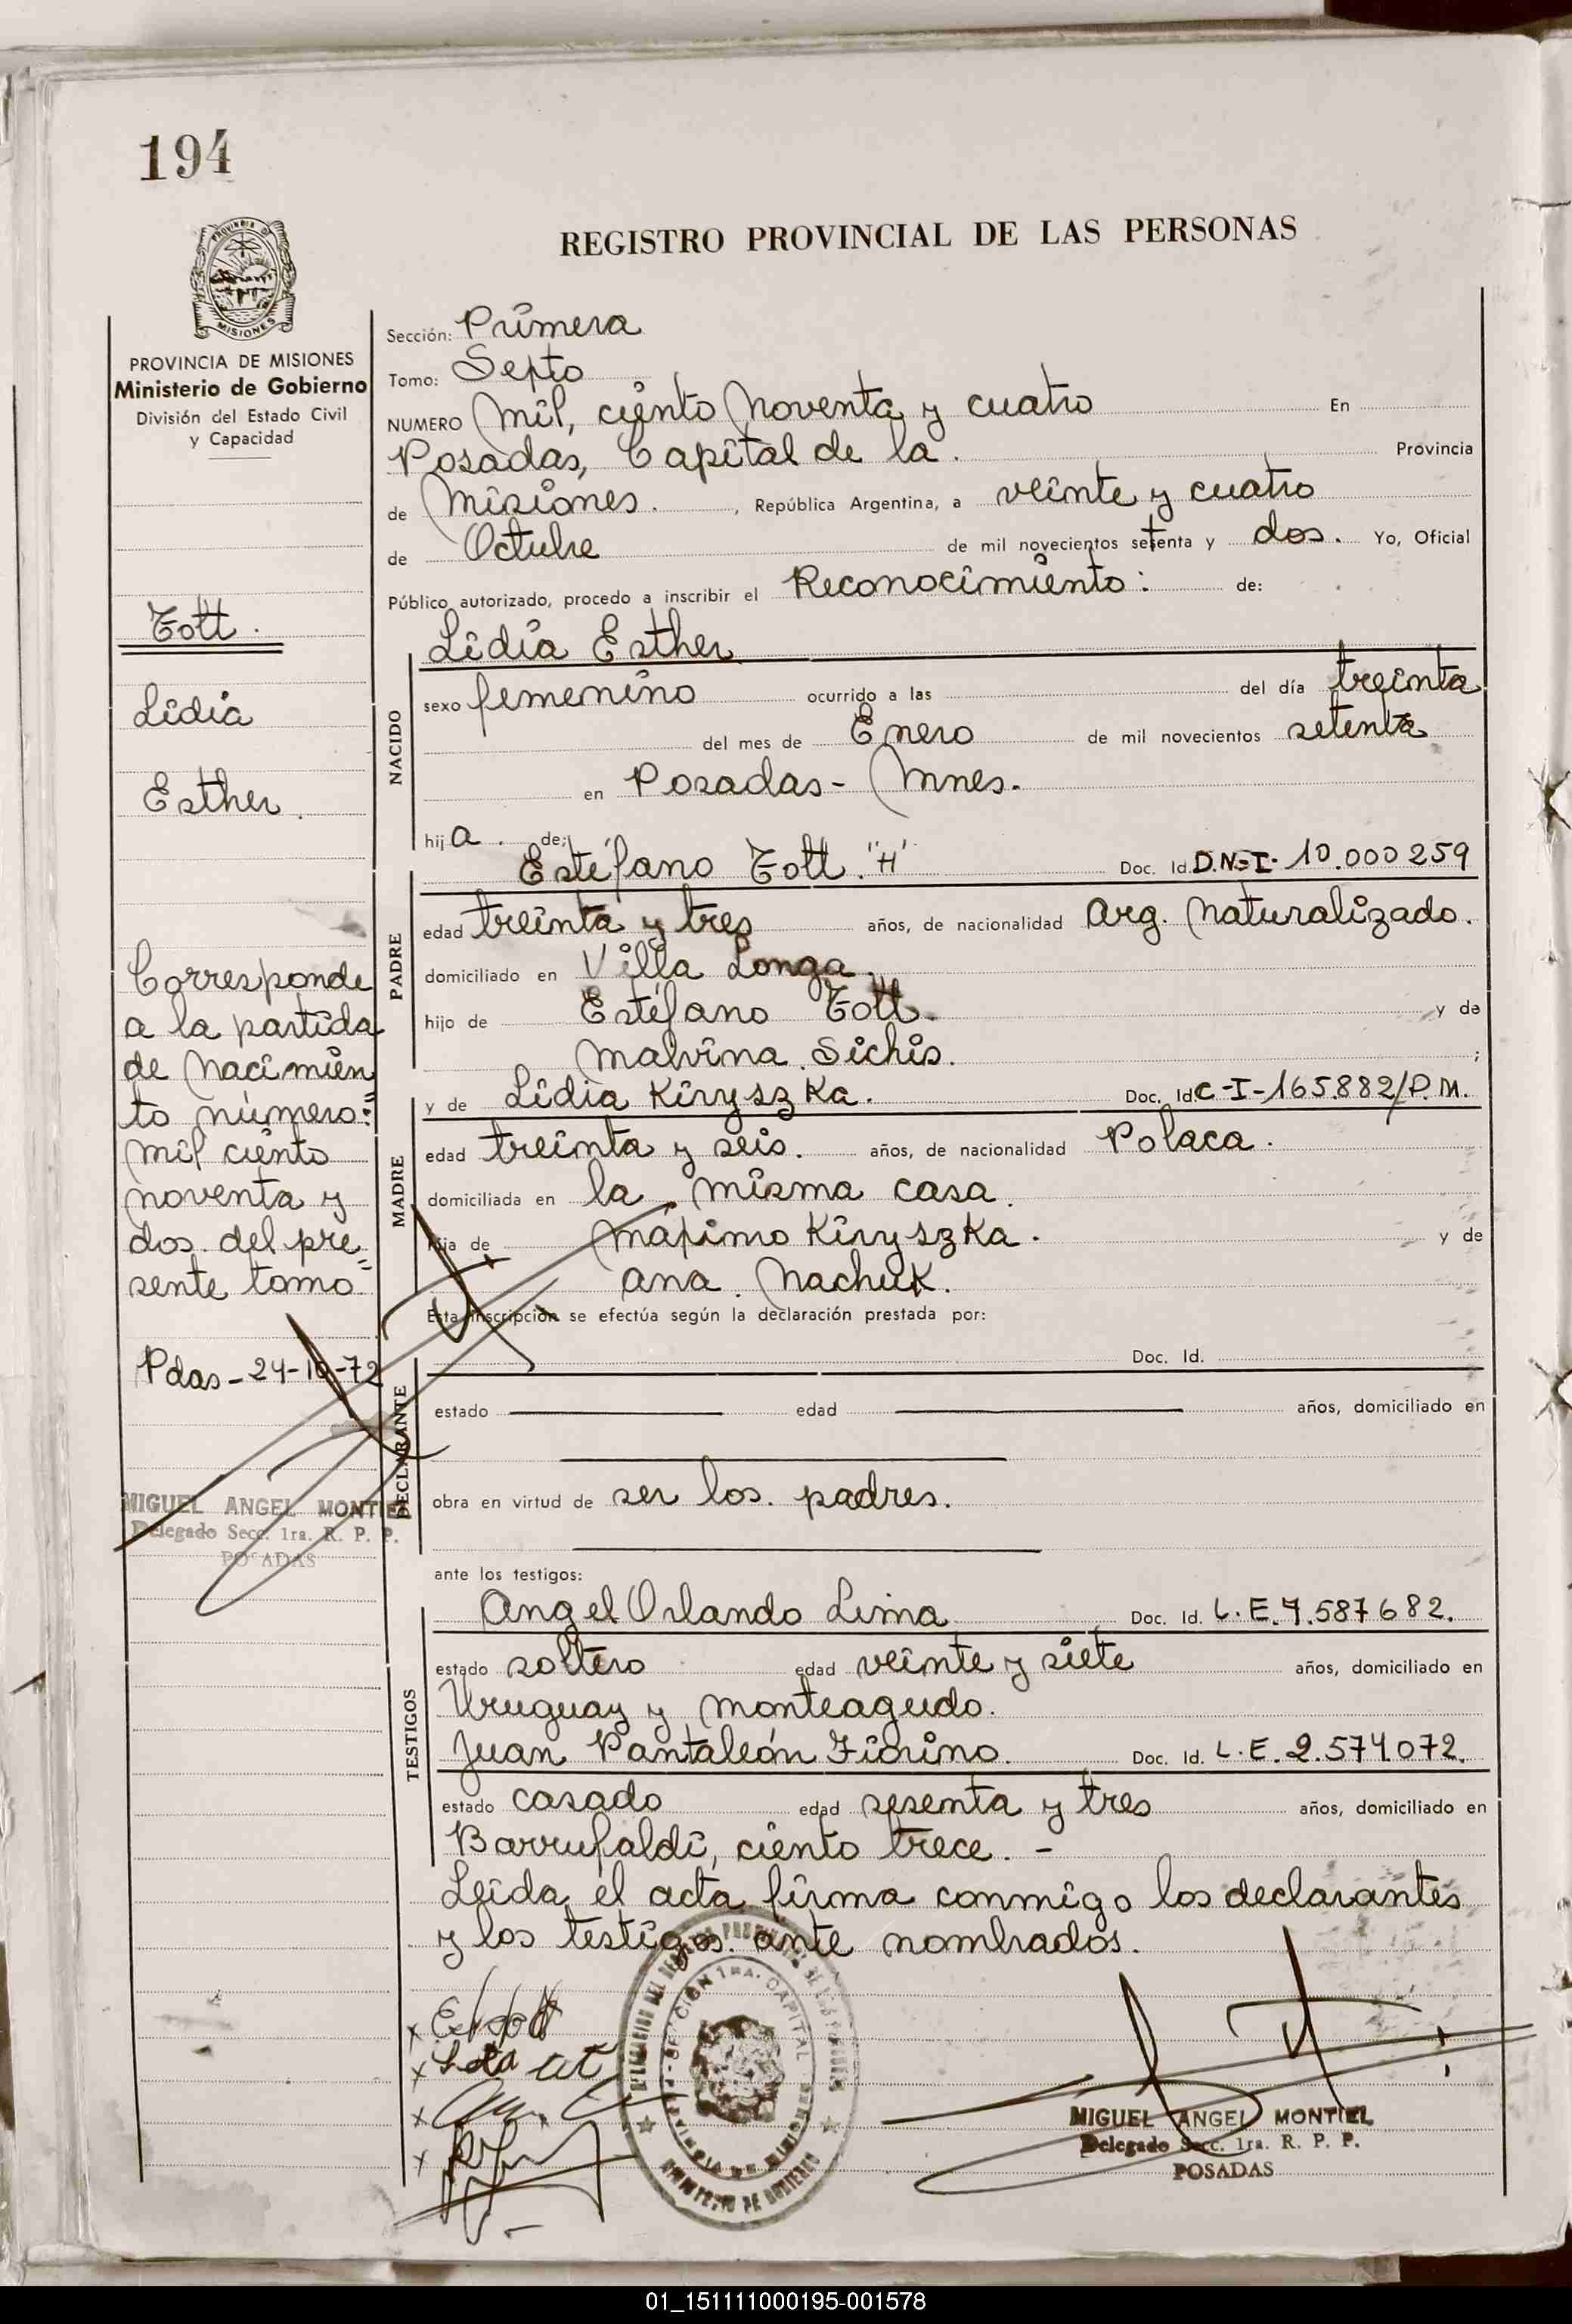 194
REGISTRO PROVINCIAL DE LAS PERSONAS
MISIONES
PROVINCIA DE MISIONES
Ministerio de Gobierno
División del Estado Civil
y Capacidad
Tott.
Lidia
Esther.
Corresponde
a la partida
de Nacimien
to número:
mil ciento
noventa y
dos. del pre
sente tomo
Pdas-24-10-72
MIGUEL ANGEL MONTIEL
Delegado Secc. 1ra. R. P. P.
POSADAS
Sección: Primera
Tomo: Septo
NUMERO Mil, ciento Noventa y cuatro En
Posadas, Capital de la. Provincia
de Misiones. , República Argentina, a veinte y cuatro
de Octubre de mil novecientos setenta y dos. Yo, Oficial
Público autorizado, procedo a inscribir el Reconocimiento: de:
Lidia Esther
NACIDO
sexo femenino ocurrido a las del día treinta
del mes de Enero de mil novecientos setenta
en Posadas- Mnes.
hij a. de:
Estéfano Tott. "H" Doc. Id. D.N.I. 10.000259
PADRE
edad treinta y tres años, de nacionalidad Arg. Naturalizado.
domiciliado en Villa Longa.
hijo de Estéfano Tott. y de
Malvina. Sichis. ;
y de Lidia Kiryszka. Doc. Id. C-I-165.882/P.M.
MADRE
edad treinta y seis. años, de nacionalidad Polaca.
domiciliada en la misma casa.
hija de Máximo Kiryszka. y de
Ana. Nachuk.
Esta inscripción se efectúa según la declaración prestada por:
Doc. Id.
DECLARANTE
estado edad años, domiciliado en
obra en virtud de ser los. padres.
ante los testigos:
Angel Orlando Lima Doc. Id. L.E. 7.587682.
TESTIGOS
estado soltero edad veinte y siete años, domiciliado en
Uruguay y Monteagudo.
Juan Pantaleón Fiorino. Doc. Id. L.E. 2.574.072.
estado casado edad sesenta y tres años, domiciliado en
Barrufaldi, ciento trece. -
Leída el acta firma conmigo los declarantes
y los testigos. ante nombrados.
MIGUEL ANGEL MONTIEL
Delegado Secc. 1ra. R. P. P.
POSADAS
01_151111000195-001578